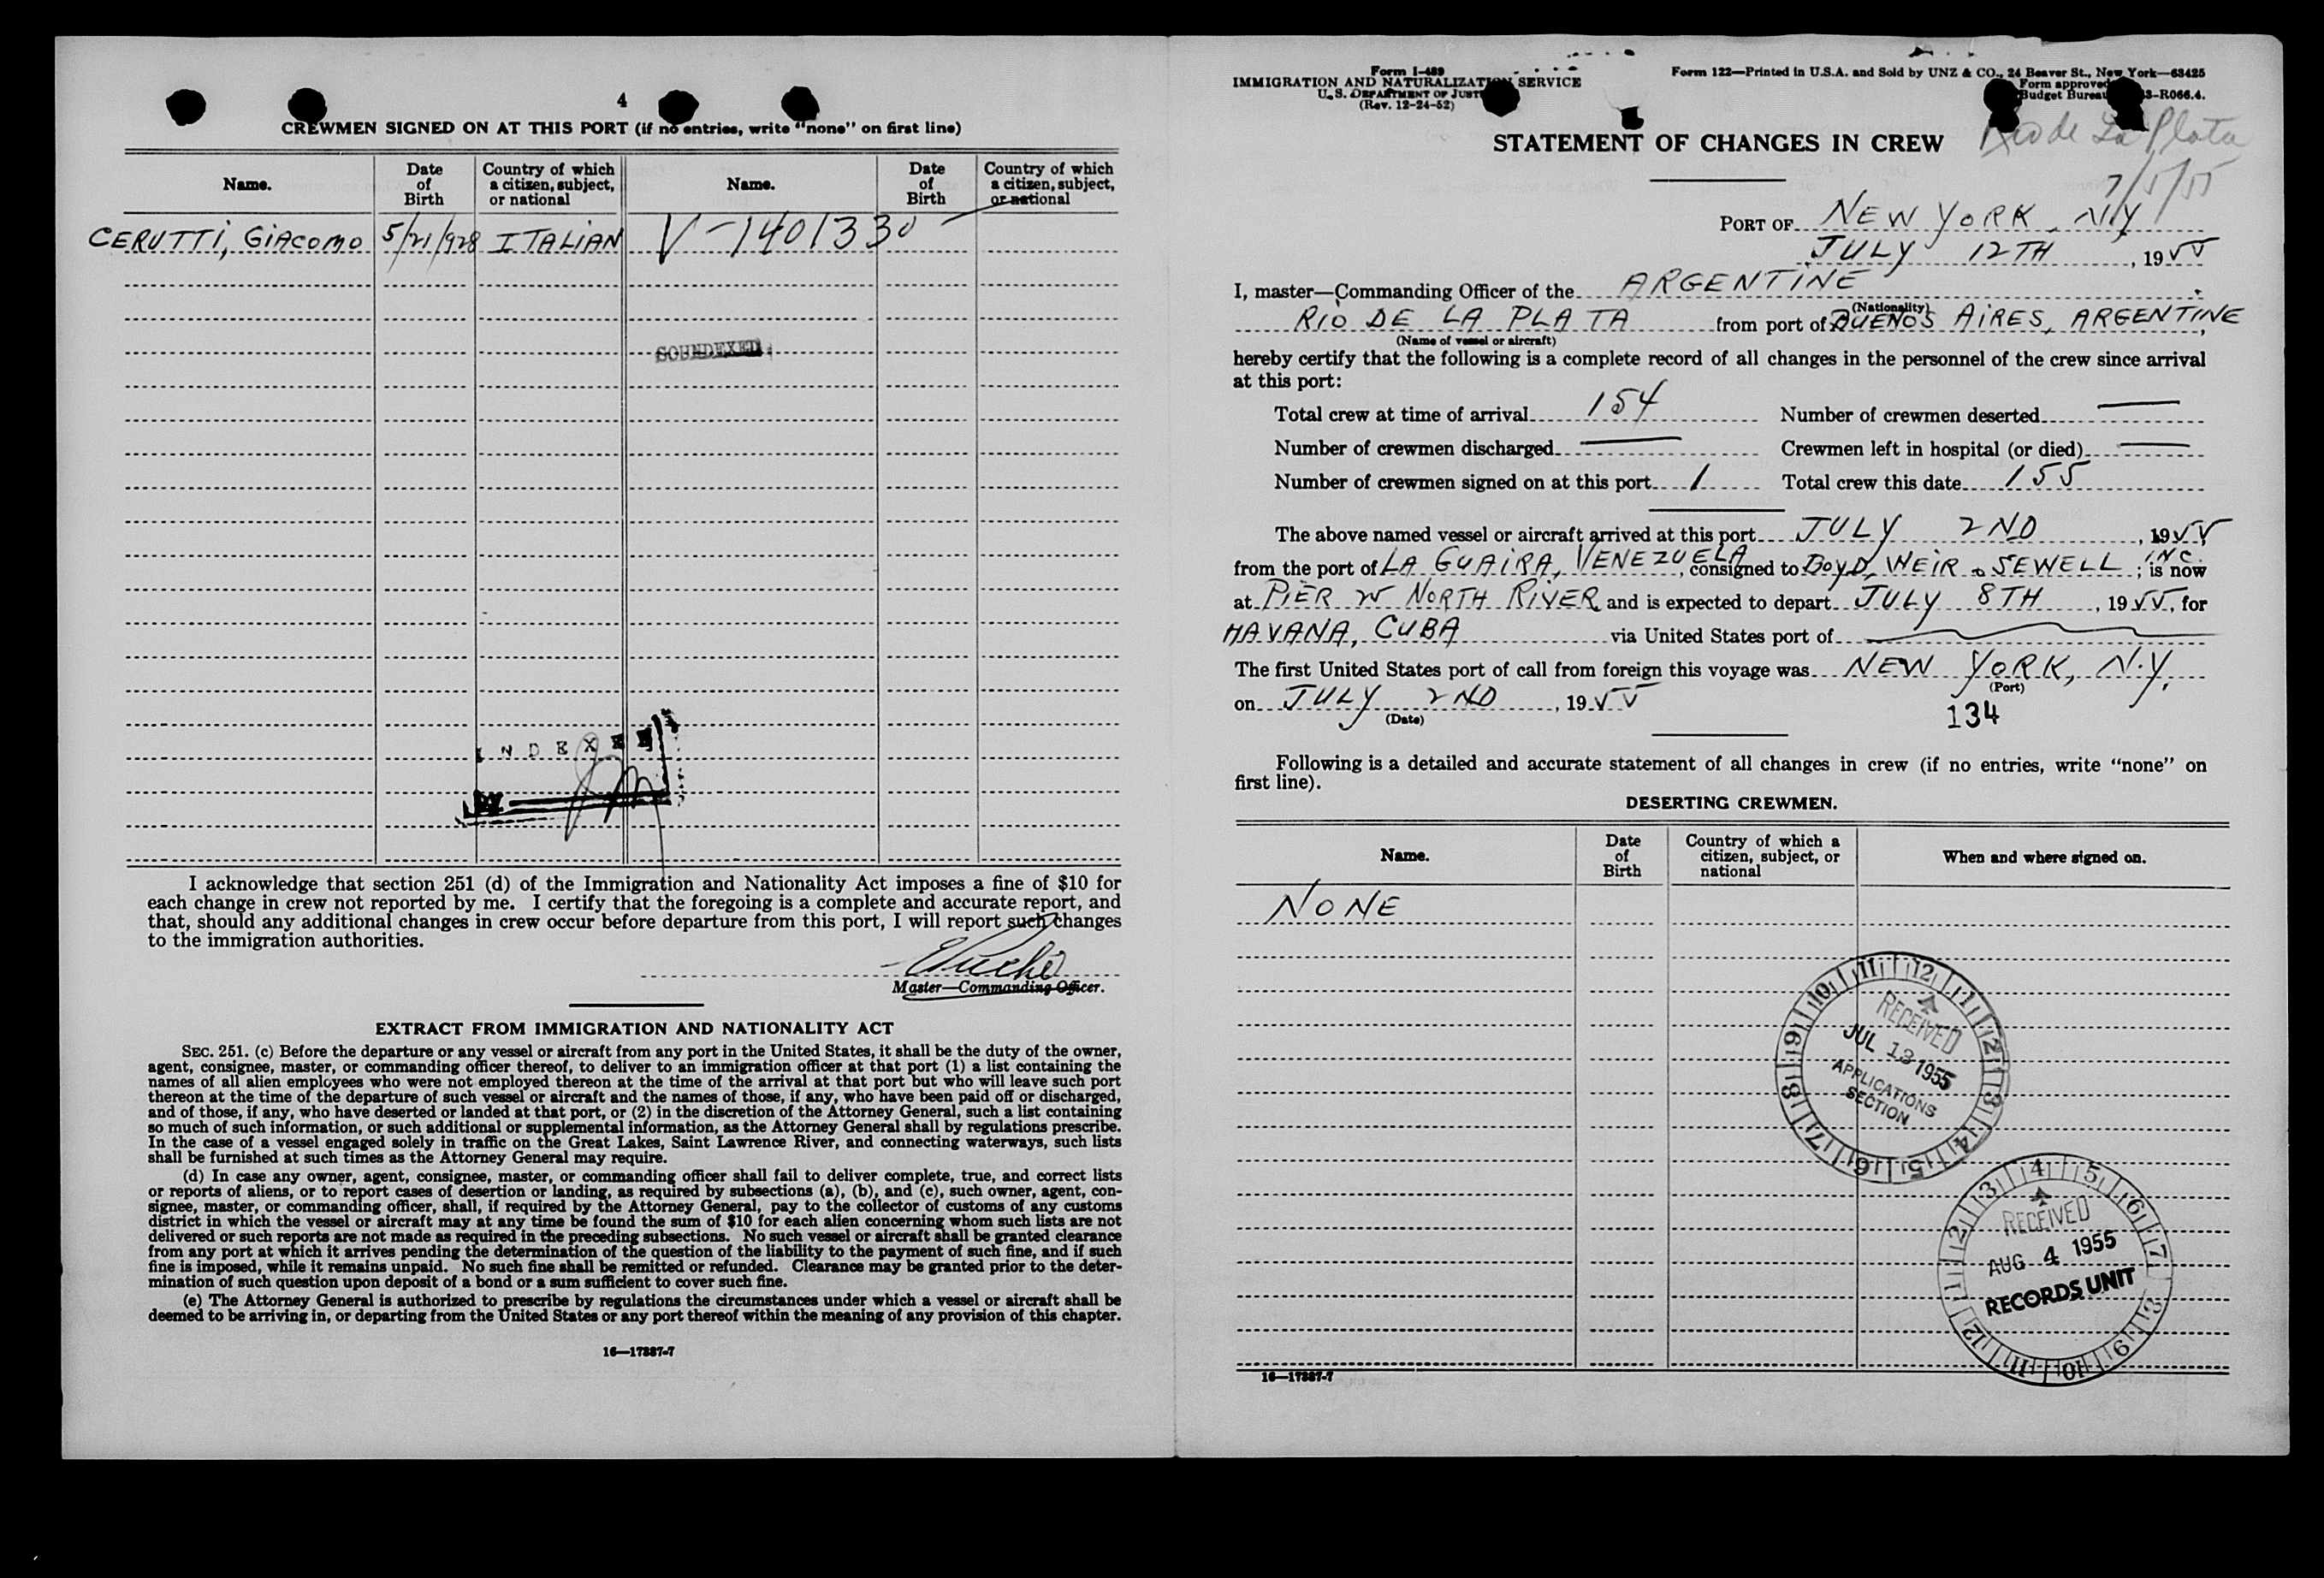 4
CREWMEN SIGNED ON AT THIS PORT (if no entries, write "none" on first line)
Name. Date of Birth Country of which a citizen, subject, or national Name. Date of Birth Country of which a citizen, subject, or national
CERUTTI, GIACOMO 5/21/928 ITALIAN V-1401330
SOUNDEXED
INDEXED
BY
I acknowledge that section 251 (d) of the Immigration and Nationality Act imposes a fine of $10 for
each change in crew not reported by me. I certify that the foregoing is a complete and accurate report, and
that, should any additional changes in crew occur before departure from this port, I will report such changes
to the immigration authorities.
Master—Commanding Officer.
EXTRACT FROM IMMIGRATION AND NATIONALITY ACT
SEC. 251. (c) Before the departure or any vessel or aircraft from any port in the United States, it shall be the duty of the owner,
agent, consignee, master, or commanding officer thereof, to deliver to an immigration officer at that port (1) a list containing the
names of all alien employees who were not employed thereon at the time of the arrival at that port but who will leave such port
thereon at the time of the departure of such vessel or aircraft and the names of those, if any, who have been paid off or discharged,
and of those, if any, who have deserted or landed at that port, or (2) in the discretion of the Attorney General, such a list containing
so much of such information, or such additional or supplemental information, as the Attorney General shall by regulations prescribe.
In the case of a vessel engaged solely in traffic on the Great Lakes, Saint Lawrence River, and connecting waterways, such lists
shall be furnished at such times as the Attorney General may require.
(d) In case any owner, agent, consignee, master, or commanding officer shall fail to deliver complete, true, and correct lists
or reports of aliens, or to report cases of desertion or landing, as required by subsections (a), (b), and (c), such owner, agent, con-
signee, master, or commanding officer, shall, if required by the Attorney General, pay to the collector of customs of any customs
district in which the vessel or aircraft may at any time be found the sum of $10 for each alien concerning whom such lists are not
delivered or such reports are not made as required in the preceding subsections. No such vessel or aircraft shall be granted clearance
from any port at which it arrives pending the determination of the question of the liability to the payment of such fine, and if such
fine is imposed, while it remains unpaid. No such fine shall be remitted or refunded. Clearance may be granted prior to the deter-
mination of such question upon deposit of a bond or a sum sufficient to cover such fine.
(e) The Attorney General is authorized to prescribe by regulations the circumstances under which a vessel or aircraft shall be
deemed to be arriving in, or departing from the United States or any port thereof within the meaning of any provision of this chapter.
16—17887-7
Form I-489
IMMIGRATION AND NATURALIZATION SERVICE
U. S. DEPARTMENT OF JUST
(Rev. 12-24-52)
Form 122—Printed in U.S.A. and Sold by UNZ & CO., 24 Beaver St., New York—63425
Form approved
Budget Bureau 3-R066.4.
Rio de La Plata
7/5/55
STATEMENT OF CHANGES IN CREW
PORT OF NEW YORK, N.Y
JULY 12TH, 1955
I, master—Commanding Officer of the ARGENTINE
(Nationality)
RIO DE LA PLATA from port of BUENOS AIRES, ARGENTINE,
(Name of vessel or aircraft)
hereby certify that the following is a complete record of all changes in the personnel of the crew since arrival
at this port:
Total crew at time of arrival 154 Number of crewmen deserted —
Number of crewmen discharged — Crewmen left in hospital (or died) —
Number of crewmen signed on at this port 1 Total crew this date 155
The above named vessel or aircraft arrived at this port JULY 2ND, 1955
from the port of LA GUAIRA, VENEZUELA, consigned to BOYD, WEIR & SEWELL INC.; is now
at PIER W NORTH RIVER and is expected to depart JULY 8TH, 1955, for
HAVANA, CUBA via United States port of —
The first United States port of call from foreign this voyage was NEW YORK, N.Y.
(Port)
on JULY 2ND, 1955
(Date)
134
Following is a detailed and accurate statement of all changes in crew (if no entries, write "none" on
first line).
DESERTING CREWMEN.
Name. Date of Birth Country of which a citizen, subject, or national When and where signed on.
NONE
11 12 1 2 3 4 5 6 7 8 9 10
RECEIVED
JUL 13 1955
APPLICATIONS
SECTION
4 5 6 7 8 9 10 11 12 1 2 3
RECEIVED
AUG 4 1955
RECORDS UNIT
16—17887-7